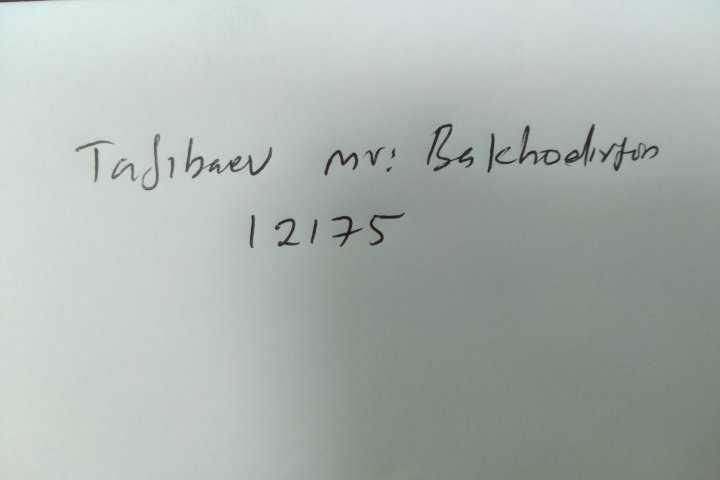 Tajibaev mr: Bakhodirjon
12175